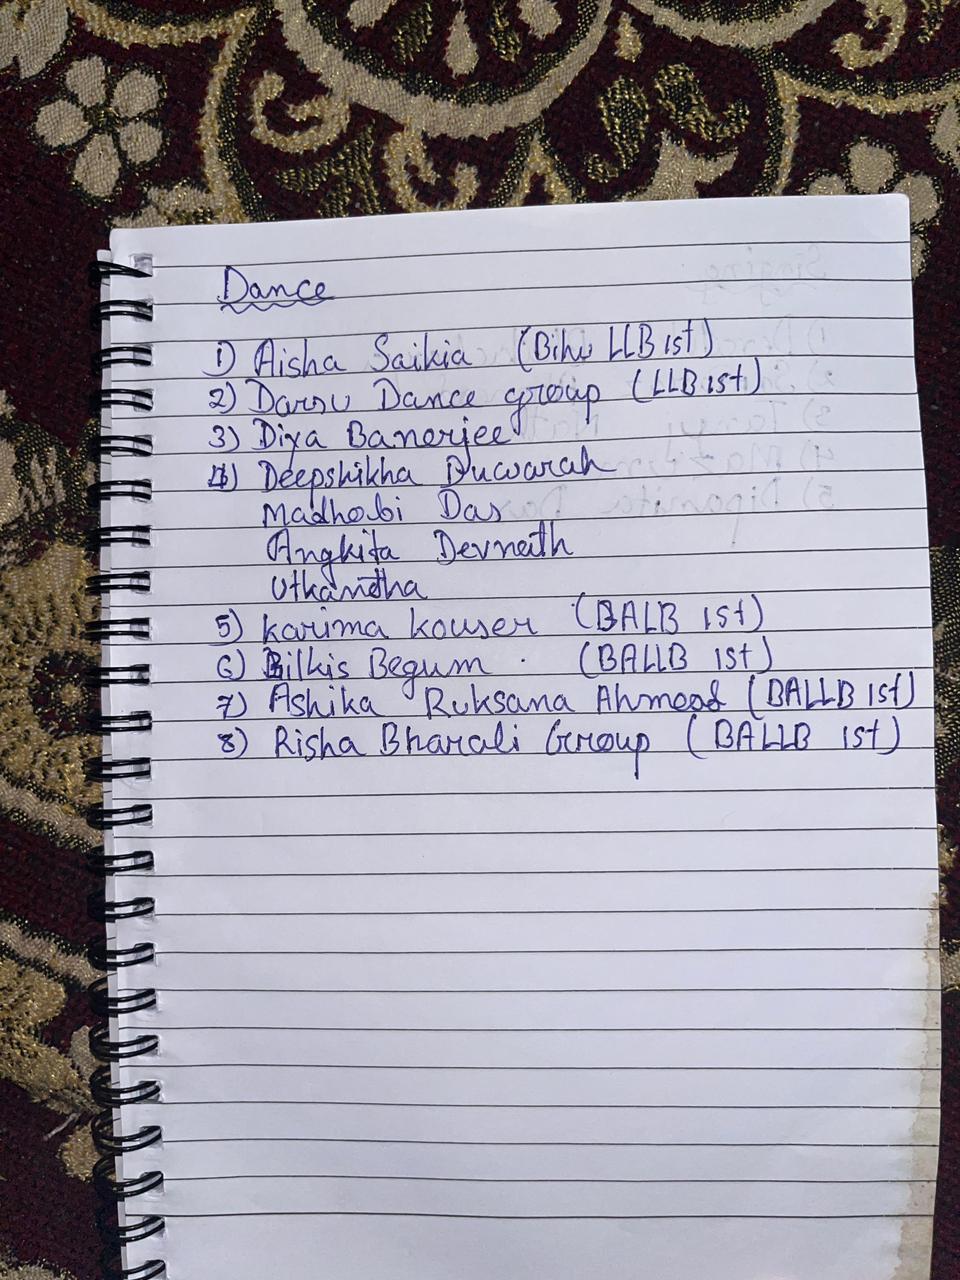 Dance
1) Aisha Saikia (Bihu LLB 1st)
2) Darsu Dance group (LLB 1st)
3) Diya Banerjee
4) Deepshikha Duwarah
Madhobi Das
Angkita Devnath
Utkantha
5) Karima Kouser (BALB 1st)
6) Bilkis Begum . (BALLB 1st)
7) Ashika Ruksana Ahmed (BALLB 1st)
8) Risha Bharali Group (BALLB 1st)